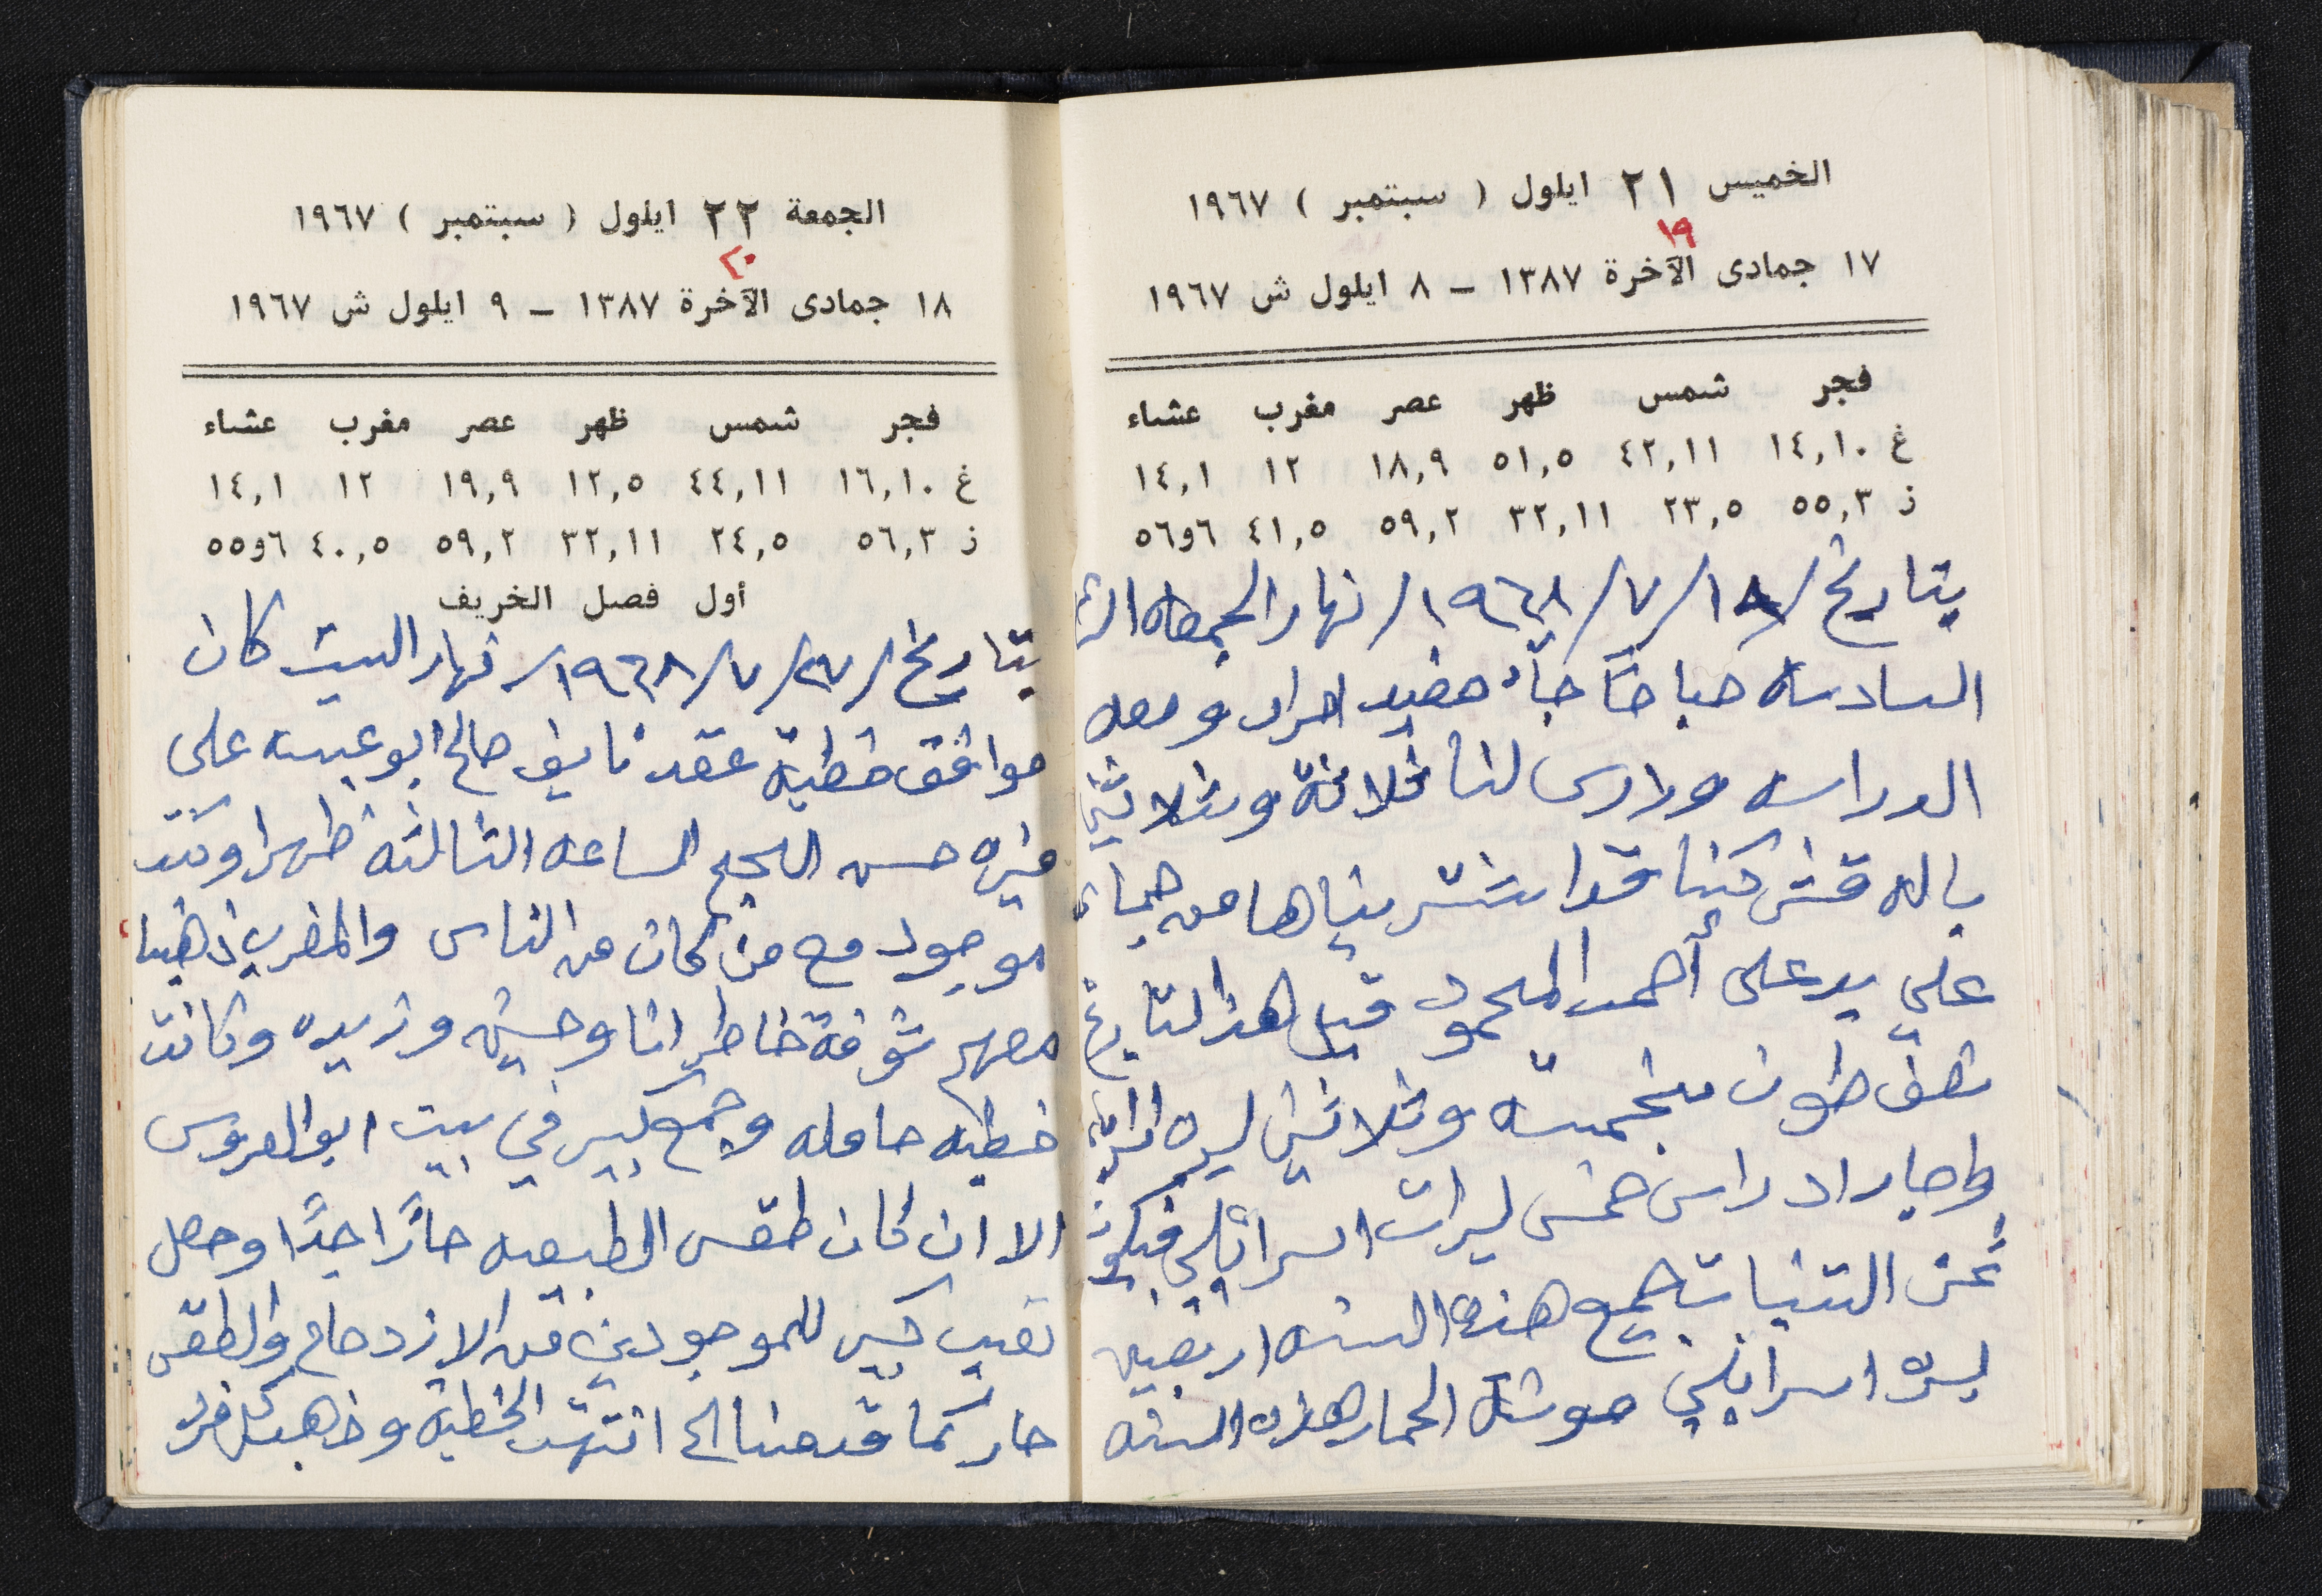 الخميس ٢١ ايلول ( سبتمبر ) ١٩٦٧
١٩
١٧ جمادى الآخرة ١٣٨٧ – ٨ ايلول ش ١٩٦٧
فجر شمس ظهر عصر مغرب عشاء
غ ١٤,١٠ ٤٢,١١ ٥١,٥ ١٨,٩ ١٢ ١٤,١
ز ٥٥,٣ ٢٣,٥ ٣٢,١١ ٥٩,٢ ٤١,٥ ٥٦و٦
بتاريخ /١٨/٧/١٩٦٨/ نهار
السادسه صباحاً جاء مفيد ومعه
الدراسه ودارس لنا ثلاثة وثلاثين
كنا قد اشتريناها من
علي يد علي أحمد المحمود قبل هذا التاريخ
نصف طون بخمسه وثلاثين ليره
واجار ادراس خمس ليرات اسرائيلي فيكون
ثمن التبنات جميع هذه السنه اربعين
ليرة اسرائيلي مونة الحمار هذه السنه
الجمعة ٢٢ ايلول ( سبتمبر ) ١٩٦٧
٢٠
١٨ جمادى الآخرة ١٣٨٧ – ٩ ايلول ش ١٩٦٧
فجر شمس ظهر عصر مغرب عشاء
غ ١٦,١٠ ٤٤,١١ ١٢,٥ ١٩,٩ ١٢ ١٤,١
ز ٥٦,٣ ٢٤,٥ ٣٢,١١ ٥٩,٢ ٤٠,٥ ٥٥و٦
أول فصل الخريف
بتاريخ /٢٧/٧/١٩٦٨/ نهار السبت كان
موافق خطبة عقد نايف صالح ابو عبسه على
حسن الساعه الثالثه ظهرا وكنت
موجود مع من كان من الناس والمغرب ذهبنا
معهم شوفة خاطر انا وحسين وزيده وكانت
خطبه حافله وجمع كبير في بيت ابو العروس
الا ان كان طقس الطبيعه حارًا جدًا وحصل
تعب كبير للموجودين من الازدحام والطقس
حار كما قدمنا الخ انتهت الخطبة وذهب كل فرد